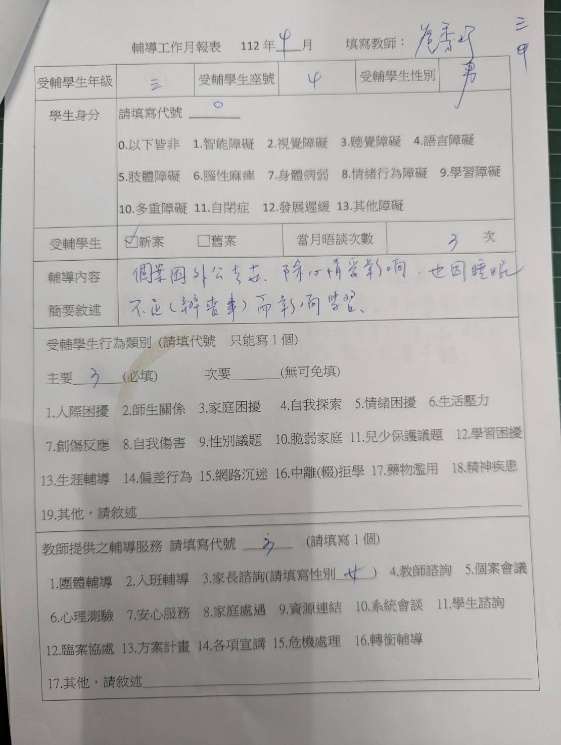 三甲
輔導工作月報表 112 年 4 月 填寫教師：
受輔學生年級 三 受輔學生座號 4 受輔學生性別 男
學生身分 請填寫代號 0
0.以下皆非 1.智能障礙 2.視覺障礙 3.聽覺障礙 4.語言障礙
5.肢體障礙 6.腦性麻痺 7.身體病弱 8.情緒行為障礙 9.學習障礙
10.多重障礙 11.自閉症 12.發展遲緩 13.其他障礙
受輔學生 ☑新案 □舊案 當月晤談次數 3 次
輔導內容 個案因外公去世、除心情受影响，也因睡眠
簡要敘述 不足(辦喪事)而影响學習、
受輔學生行為類別 (請填代號 只能寫 1 個)
主要 3 (必填) 次要______(無可免填)
1.人際困擾 2.師生關係 3.家庭困擾 4.自我探索 5.情緒困擾 6.生活壓力
7.創傷反應 8.自我傷害 9.性別議題 10.脆弱家庭 11.兒少保護議題 12.學習困擾
13.生涯輔導 14.偏差行為 15.網路沉迷 16.中離(輟)拒學 17.藥物濫用 18.精神疾患
19.其他，請敘述
教師提供之輔導服務 請填寫代號 3 (請填寫 1 個)
1.團體輔導 2.入班輔導 3.家長諮詢(請填寫性別 女 ) 4.教師諮詢 5.個案會議
6.心理測驗 7.安心服務 8.家庭處遇 9.資源連結 10.系統會談 11.學生諮詢
12.臨案協處 13.方案計畫 14.各項宣講 15.危機處理 16.轉銜輔導
17.其他，請敘述